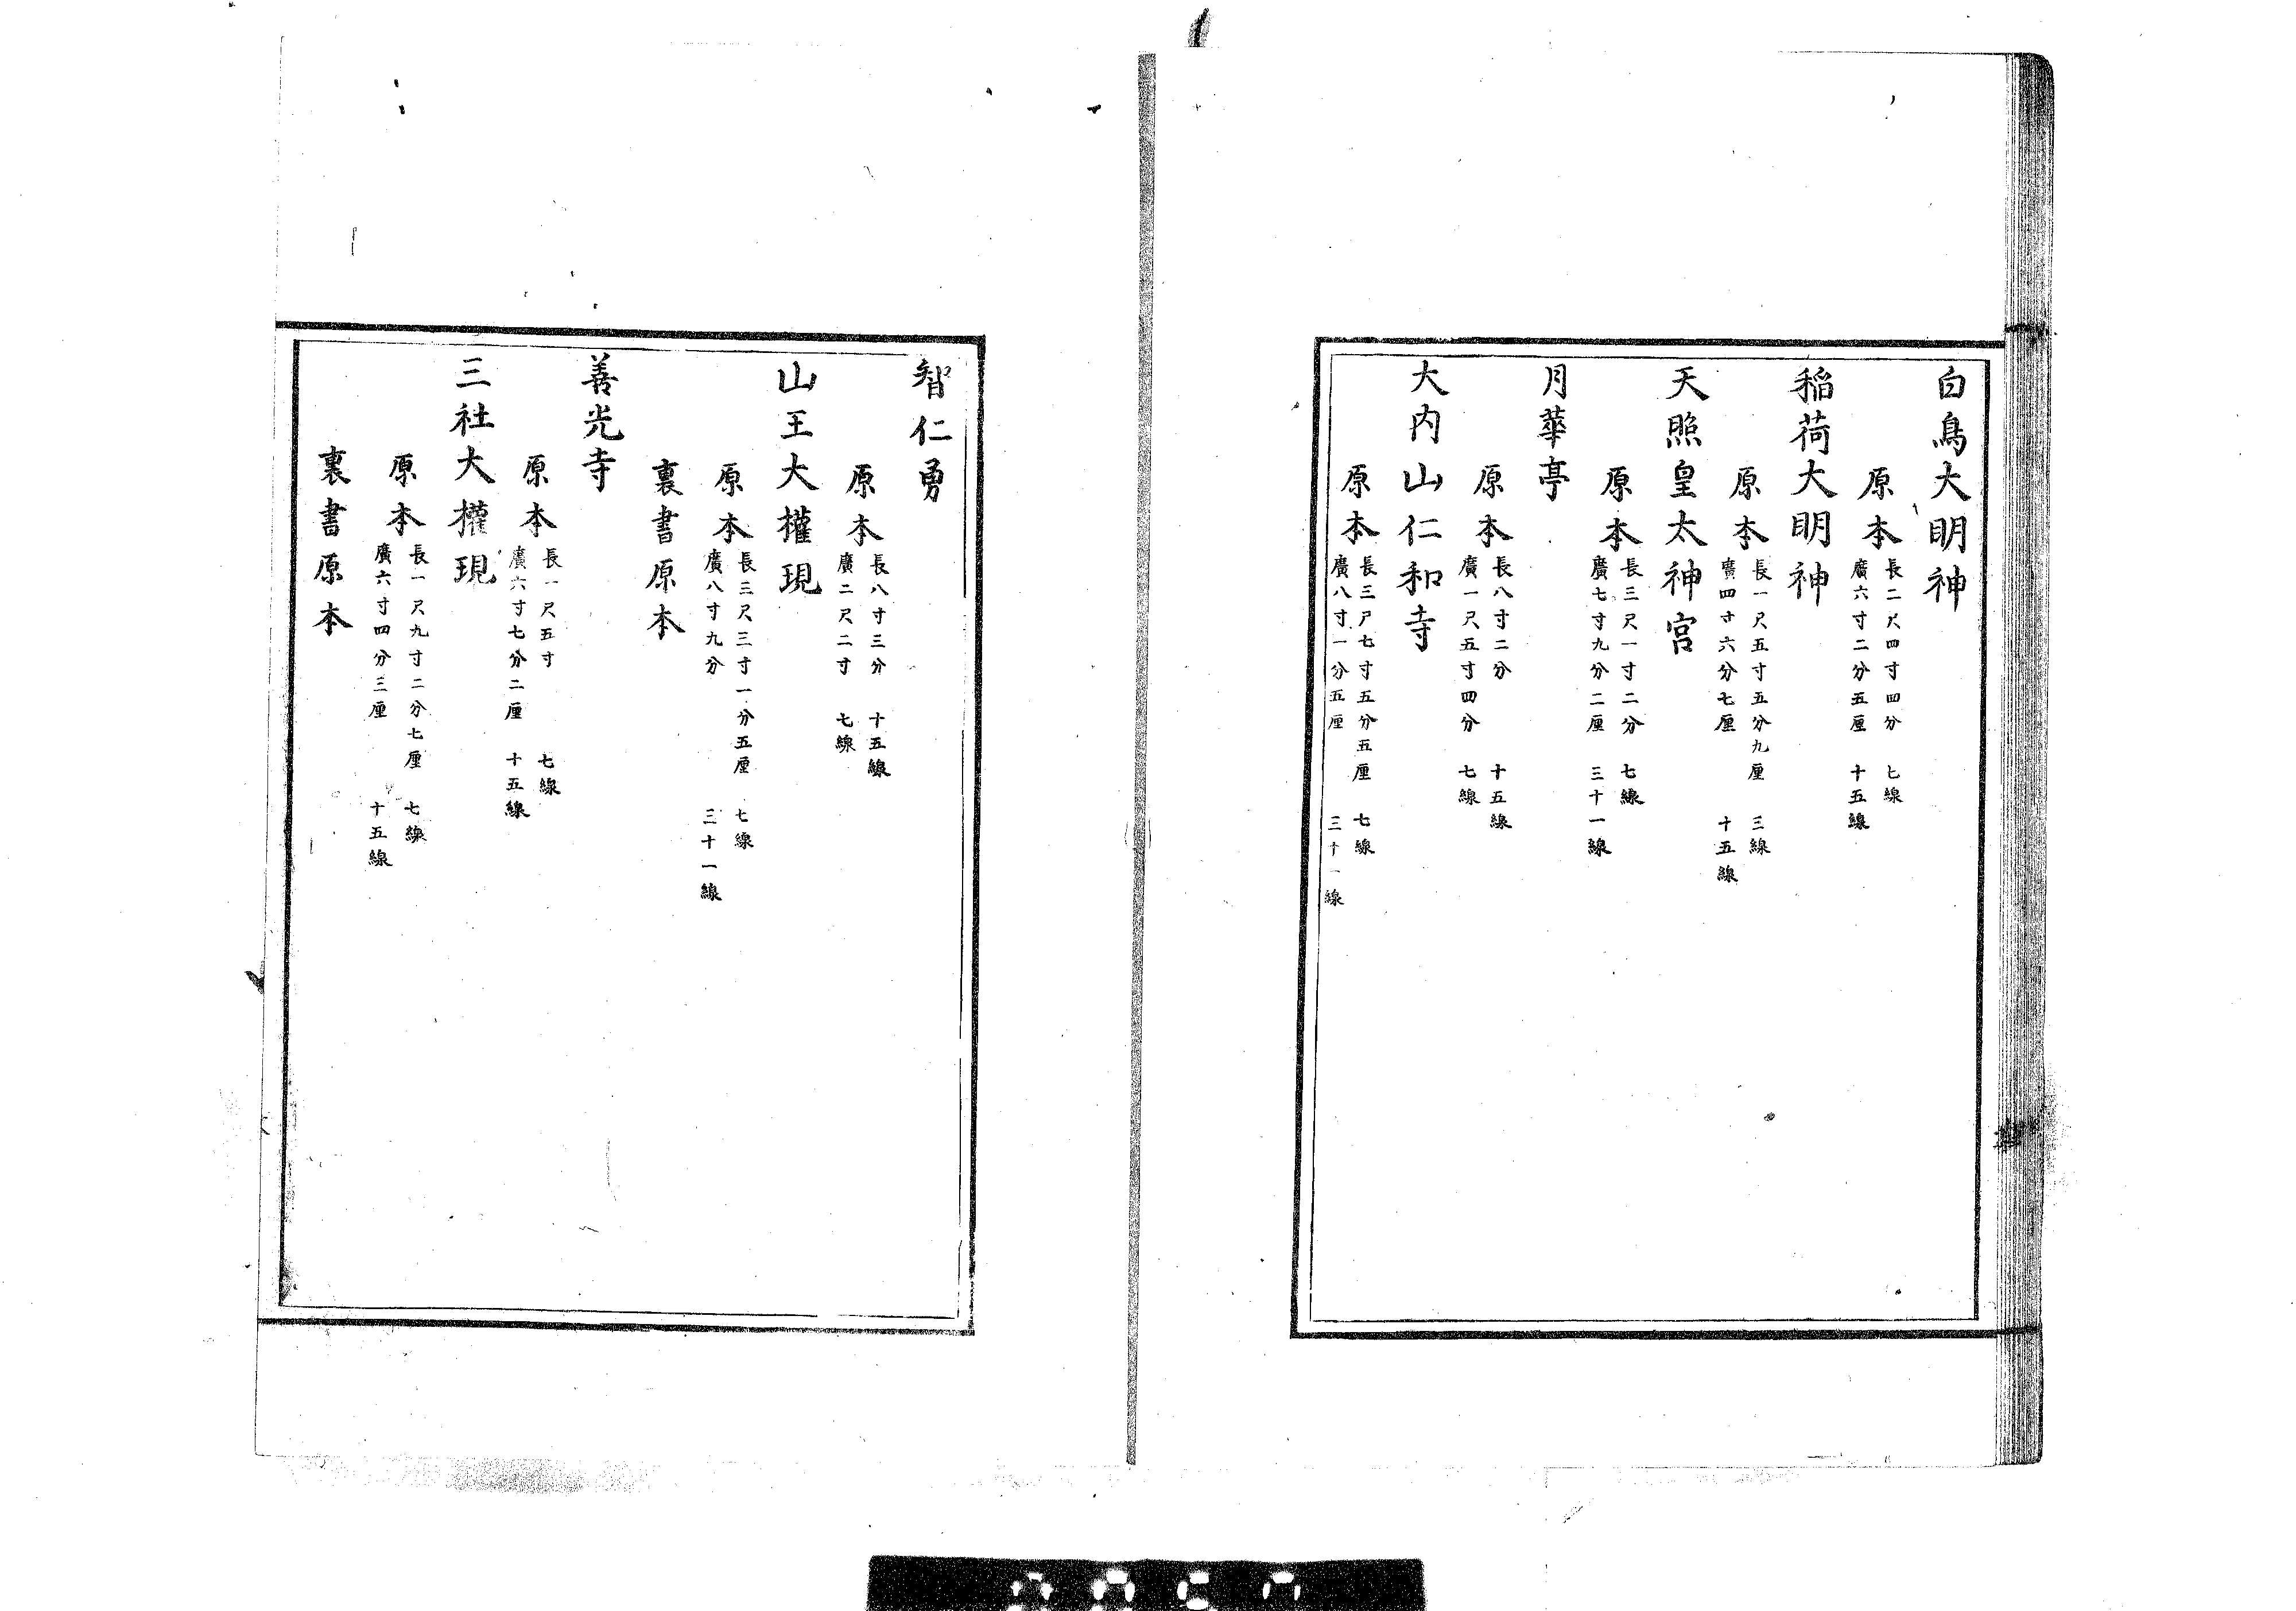 白鳥大明神
原本 長二尺四寸四分 七線
廣六寸二分五厘 十五線
稲荷大明神
原本 長一尺五寸五分九厘 三線
廣四寸六分七厘 十五線
天照皇太神宮
原本 長三尺一寸二分 七線
廣七寸九分二厘 三十一線
月華亭
原本 長八寸二分 十五線
廣一尺五寸四分 七線
大内山仁和寺
原本 長三尺七寸五分五厘 七線
廣八寸一分五厘 三十一線
智仁勇
原本 長八寸三分 十五線
廣二尺二寸 七線
山王大權現
原本 長三尺三寸一分五厘 七線
廣八寸九分 三十一線
裏書原本
善光寺
原本 長一尺五寸 七線
廣六寸七分二厘 十五線
三社大權現
原本 長一尺九寸二分七厘 七線
廣六寸四分三厘 十五線
裏書原本